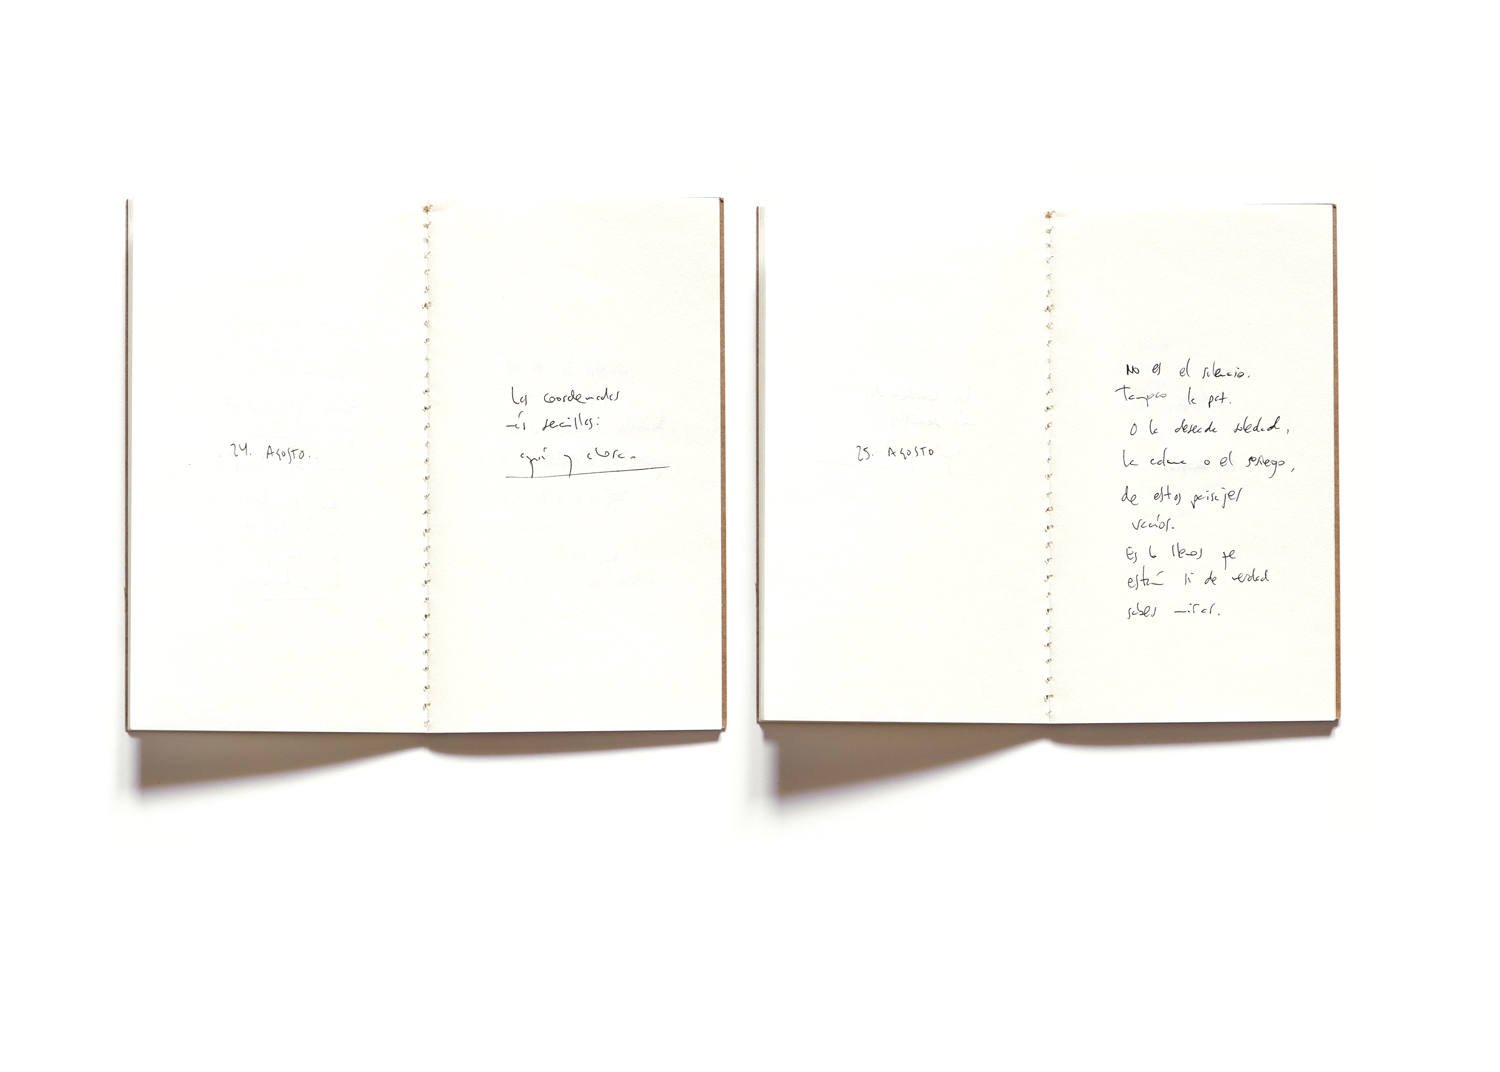 24. AGOSTO.
Las coordenadas
más sencillas:
aquí y ahora.
25. AGOSTO
No es el silencio.
Tampoco la paz.
O la deseada soledad,
la calma o el sosiego,
de estos paisajes
vacíos.
Es lo llenos que
están si de verdad
sabes mirar.